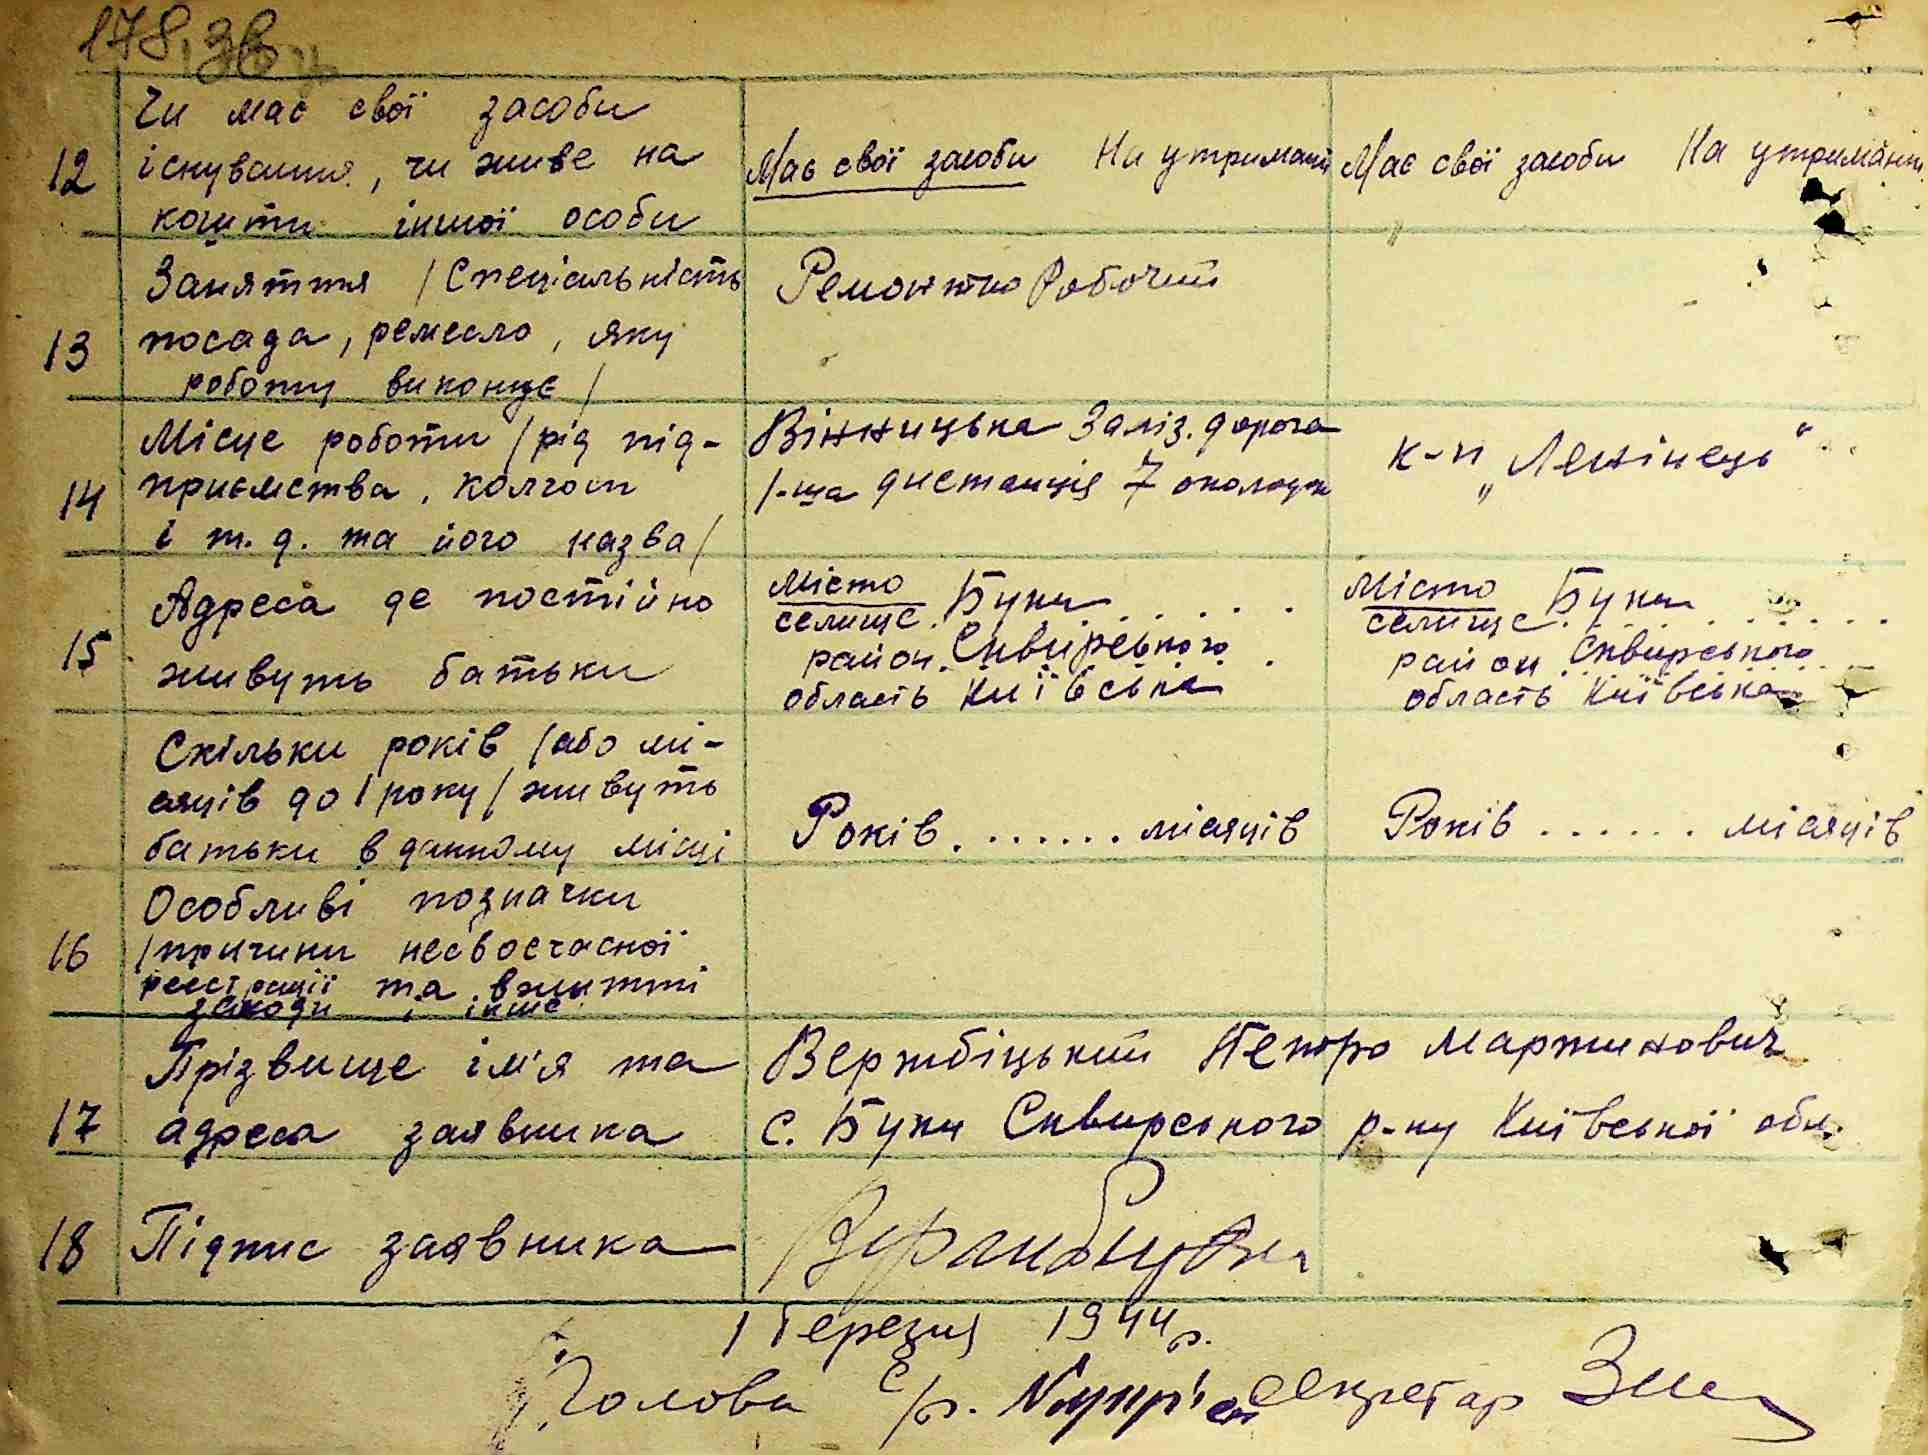 178 зв
Чи має свої засоби
12 існування, чи живе на
кошти іншої особи
Має свої засоби На утриманні
Має свої засоби На утриманні
"
Заняття /Спеціальність
13 посада, ремесло, яку
роботу виконує/
Ремонтно Робочий
Місце роботи /рід під-
14 приємства, колгосп
і т. д. та його назва/
Вінницька Заліз. дорога
1-ша дистанція 7 околодок
к-п „Ленінець"
Адреса де постійно
15 живуть батьки
місто
селище. Буки . . . .
район. Сквирського .
область Київська
місто
селище. Буки . . . . .
район Сквирського
область Київська
Скільки років /або мі-
сяців до 1 року/ живуть
батьки в данному місці
Років . . . . . . . місяців
Років . . . . . . місяців
Особливі позначки
16 /причини несвоєчасної
реєстрації та вжитті
заходи і інше
Прізвище ім'я та
17 адреса заявника
Вержбіцький Петро Мартинович
с. Буки Сквирського р-ну Київської обл.
18 Підпис заявника
1 березня 1944 р.
Голова с/р. секретар